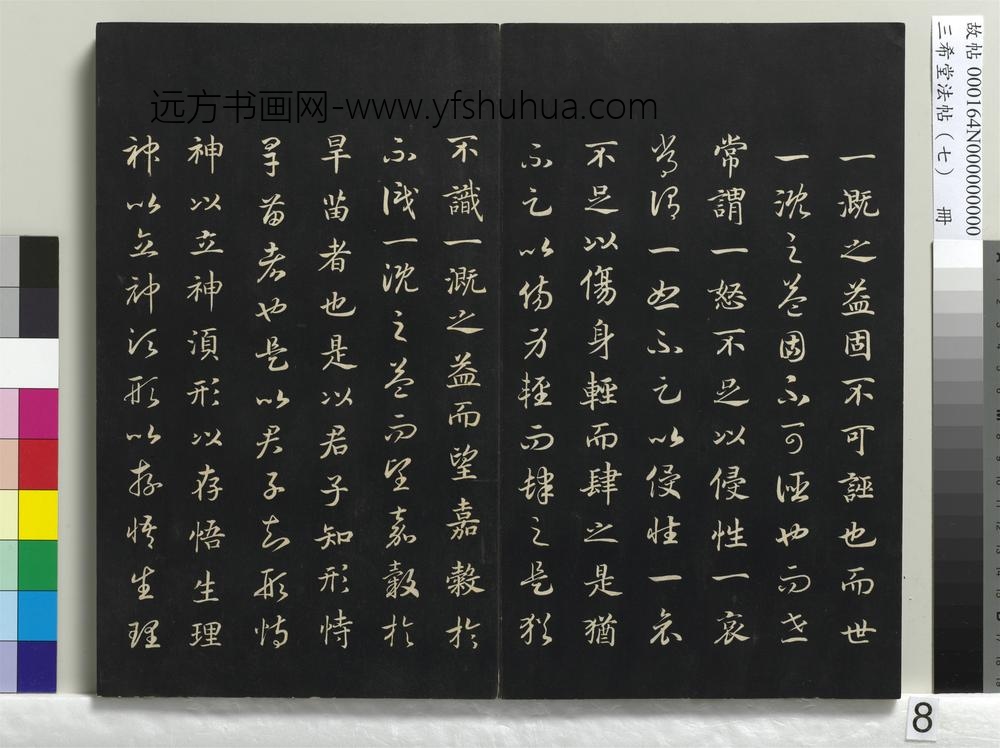 远方书画网-www.yfshuhua.com
一溉之益固不可誣也而世
一溉之益固不可誣也而世
常謂一怒不足以侵性一哀
常謂一怒不足以侵性一哀
不足以傷身輕而肆之是猶
不足以傷身輕而肆之是猶
不識一溉之益而望嘉穀於
不識一溉之益而望嘉穀於
旱苗者也是以君子知形恃
旱苗者也是以君子知形恃
神以立神須形以存悟生理
神以立神須形以存悟生理
故帖 000164N000000000
三希堂法帖(七) 冊
8